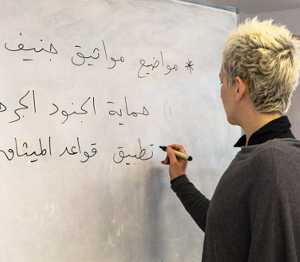 * مواضيع مواثيق جنيف
حماية الجنود الجر
تطبيق قواعد الميثاق